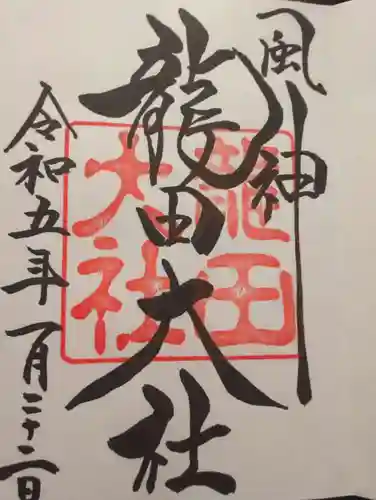 風神
龍田大社
龍田
大社
令和五年一月二十二日